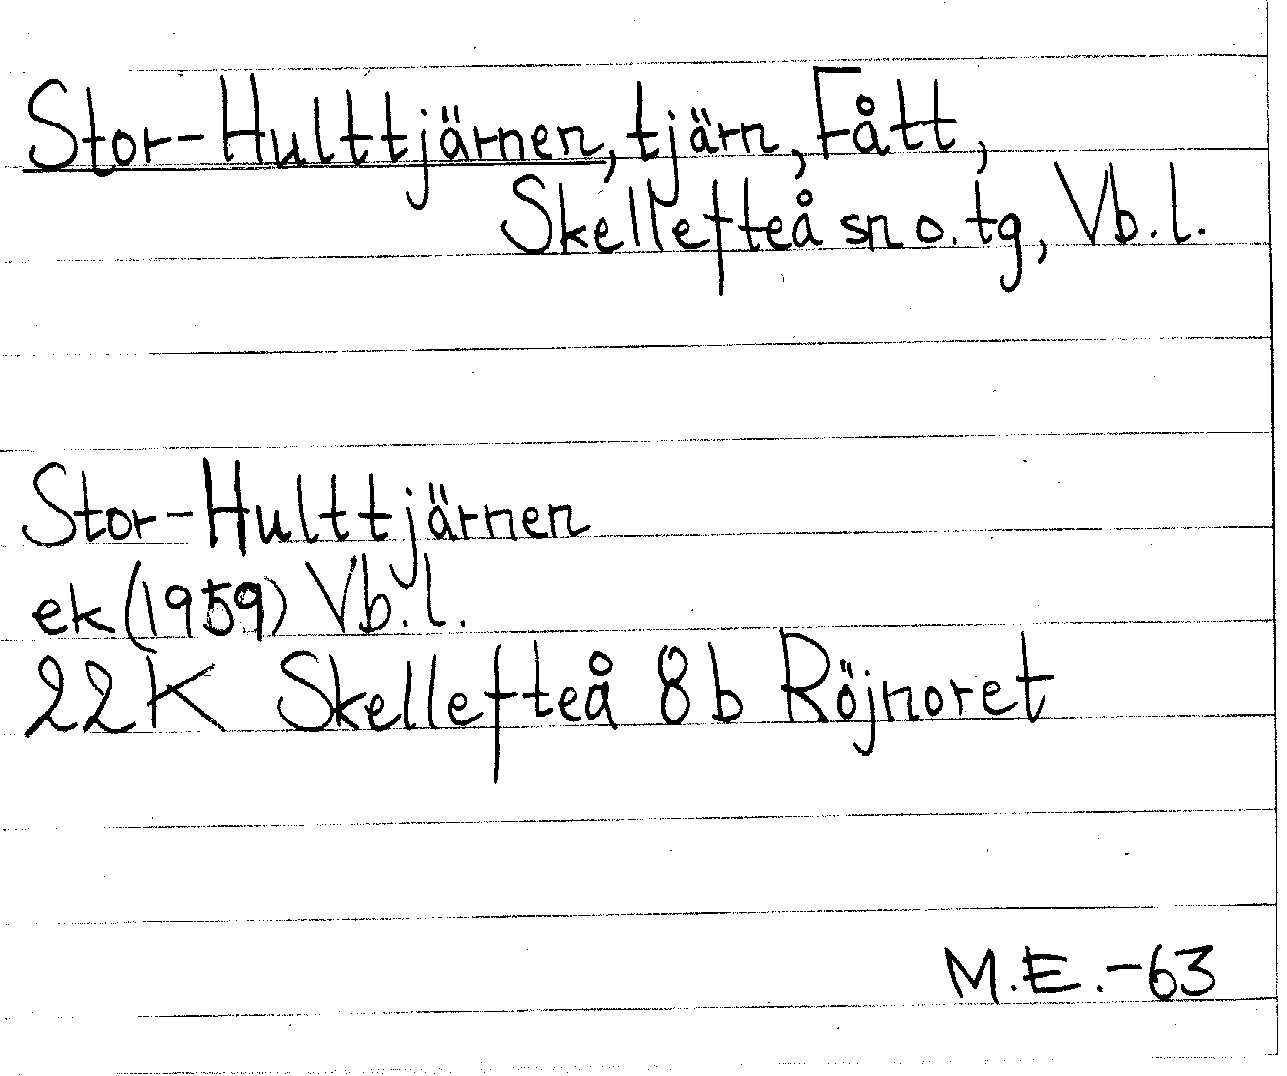 Stor-Hulttjärnen, tjärn, Fått,
Skellefteå sn o. tg, Vb.l.
Stor-Hulttjärnen
ek (1959) Vb.l.
22K Skellefteå 8b Röjnoret
M.E.-63